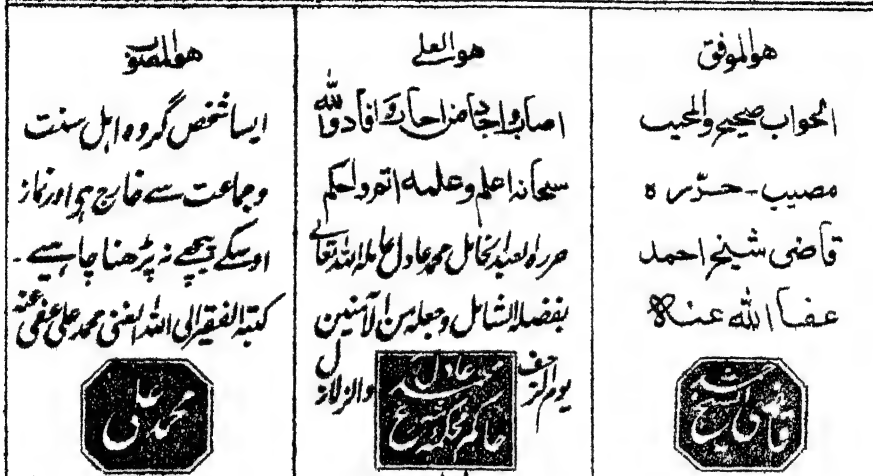 هو الموفق
الجواب صحيح والمجيب
مصيب - حرره
قاضى شيخ احمد
عفا الله عنه
هو العلى
اصاب واجاد من اجاب وافاد والله
سبحانه اعلم وعلمه اتم واحكم
حرره العبد الخامل محمد عادل عامله الله تعالى
بفضله الشامل وجعله من الآمنين
يوم الزلازل
محمد عادل
حاكم محكمه شرع
هو المصوب
ایسا شخص گروہ اہل سنت
وجماعت سے خارج ہو اور نماز
اوسکے پیچھے نہ پڑھنا چاہیے۔
كتبه الفقير الى الله الغنى محمد على عفى عنه
محمد على